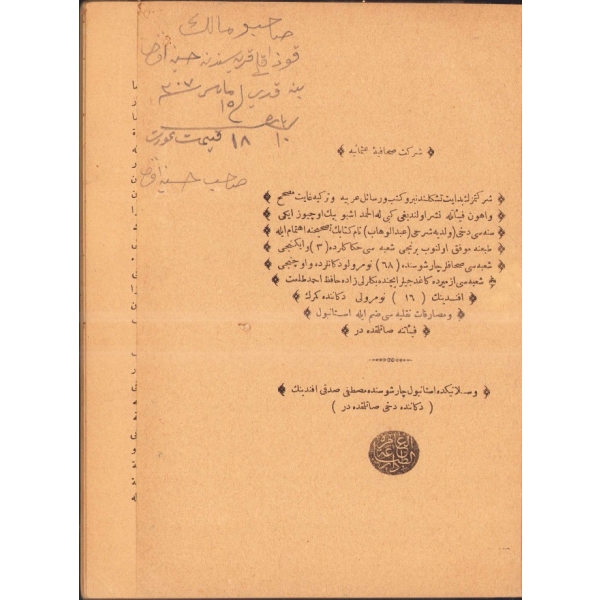 صاحب و مالك
قوذاقلى قريه سندن حسين افندى
مارس ٣٠٧
١٥
١٠ پاره
١٨ قيمت غروش
صاحب حسين افندى
شركت صحافيهٔ عثمانيه
شركتمزك بدايت تشكلندنبرو كتب ورسائل عربيه و تركيه غايت مصحح
واهون فيئاتله نشر اولنديغى كبى له الحمد اشبو بيك اوچيوز ايكى
سنه سى دخى (ولديه شرحى عبدالوهاب) نام كتابك تصحيحنه اهتمام ايله
طبعنه موفق اولنوب برنجى شعبه سى حكاكلرده (٣) وايكنجى
شعبه سى صحافلر چارشوسنده (٦٨) نومرولو دكانلرده و اوچنجى
شعبه سى ازميرده كاغدجيلر ايچنده بنكارلى زاده حافظ احمد طلعت
افندينك (١٦) نومرولى دكاننده كرك
ومصارفات نقليه سى ضم ايله استانبول
فيئاتنه صاتلقده در
وسلانيكده استانبول چارشوسنده مصطفى صدقى افندينك
(دكاننده دخى صاتلقده در)